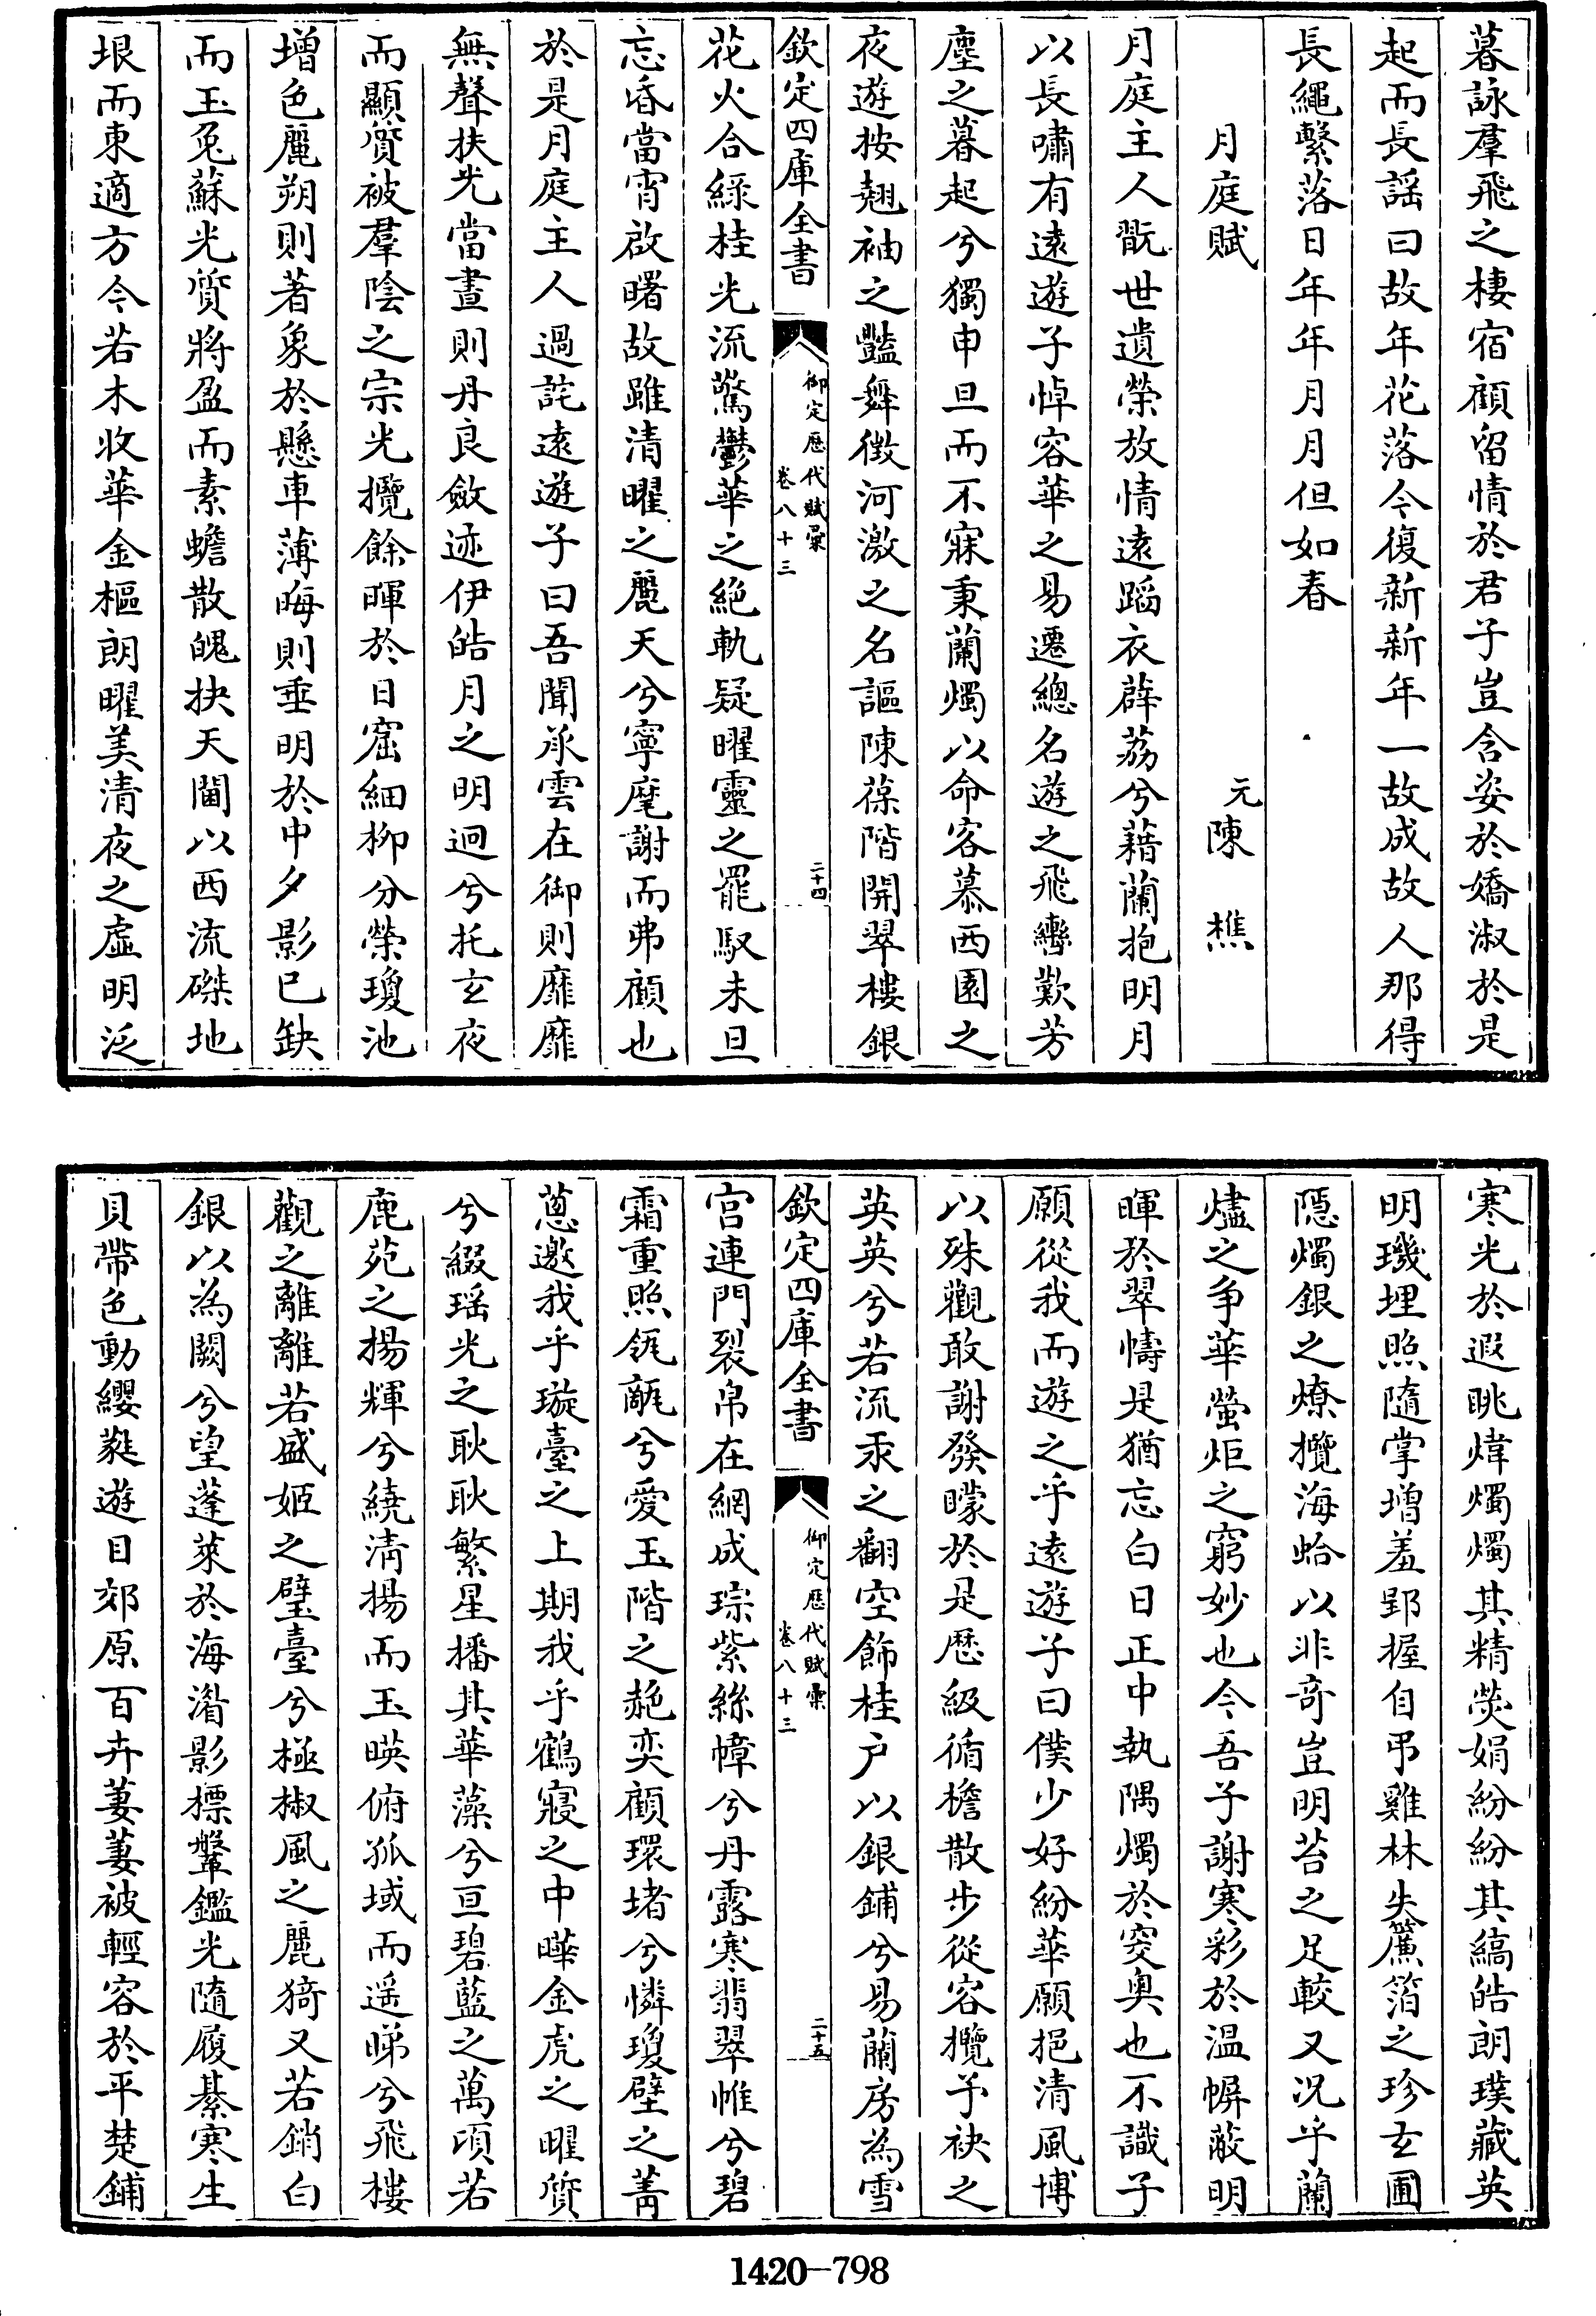 暮詠羣飛之棲宿顧留情於君子豈含姿於嬌淑於是
起而長謡曰故年花落今復新新年一故成故人那得
長繩繫落日年年月月但如春
月庭賦　元陳樵
月庭主人翫世遺榮放情逺蹈衣薜荔兮藉蘭抱明月
以長嘯有逺遊子悼容華之易遷總名遊之飛轡歎芳
塵之暮起兮獨申旦而不寐秉蘭燭以命客慕西園之
夜遊按翹袖之豔舞徴河激之名謳陳葆階開翠樓銀
欽定四庫全書　御定歴代賦彙　卷八十三　二十四
花火合緑桂光流驚鬱華之絶軌疑曜靈之罷馭未旦
忘昏當宵啟曙故雖清曜之麗天兮寧麾謝而弗顧也
於是月庭主人過詫逺遊子曰吾聞承雲在御則靡靡
無聲扶光當晝則丹良斂迹伊皓月之明迥兮托玄夜
而顯質被羣陰之宗光攬餘暉於日窟細栁分榮瓊池
増色麗朔則著象於懸車薄晦則垂明於中夕影已缺
而玉兔蘇光質將盈而素蟾散魄抉天閫以西流磔地
垠而東適方今若木收華金樞朗曜美清夜之虛明泛
寒光於遐眺煒燭燭其精熒娟紛紛其縞皓朗璞藏英
明璣埋照隨掌増羞郢握自弔雞林失簾箔之珍玄圃
隱燭銀之燎攬海蛤以非奇豈明苔之足較又况乎蘭
燼之争華螢炬之窮妙也今吾子謝寒彩於温幈蔽明
暉於翠幬是猶忘白日正中執隅燭於穾奥也不識子
願從我而遊之乎逺遊子曰僕少好紛華願挹清風博
以殊觀敢謝發矇於是歴級循檐散步從容攬予袂之
英英兮若流汞之翻空飾桂户以銀鋪兮易蘭房為雪
欽定四庫全書　御定歴代賦彙　卷八十三　二十五
宫連門裂帛在網成琮紫絲幛兮丹露寒翡翠帷兮碧
霜重照瓴甋兮愛玉階之赩奕顧環堵兮憐瓊壁之菁
蔥邀我乎璇臺之上期我乎鶴寢之中曄金虎之曜質
兮綴瑶光之耿耿繁星播其華藻兮亘碧藍之萬頃若
鹿苑之揚輝兮繞清揚而玉暎俯孤域而遥睇兮飛樓
觀之離離若盛姬之璧臺兮極椒風之麗猗又若銷白
銀以為闕兮望蓬萊於海湝影標鞶鑑光隨履綦寒生
貝帶色動纓蕤遊目郊原百卉萋萋被輕容於平楚鋪
1420—798